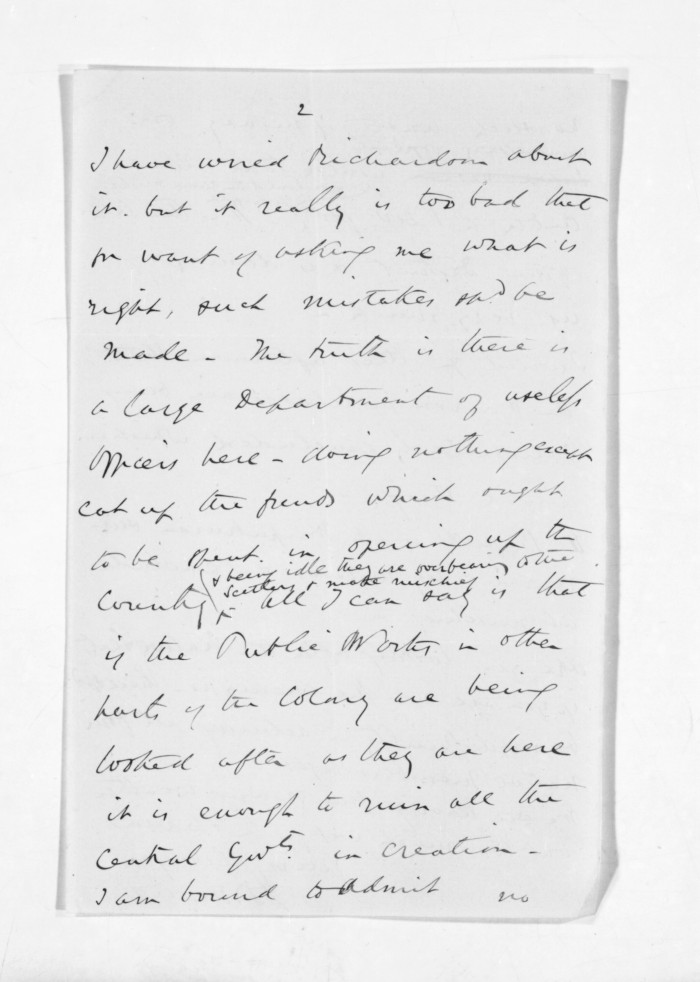 2
I have wired Richardson about
it. but it really is too bad that
for want of asking me what is
right, such mistakes shd be
made - The truth is there is
a large Department of useless
Officers here - doing nothing except
eat up the funds which ought
to be spent in opening up the
& being idle they are overbearing to the
settlers & make mischief
Country all I can say is that
if the Public Works in other
parts of the Colony are being
looked after as they are here
it is enough to ruin all the
Central Govts. in creation -
I am bound to admit no